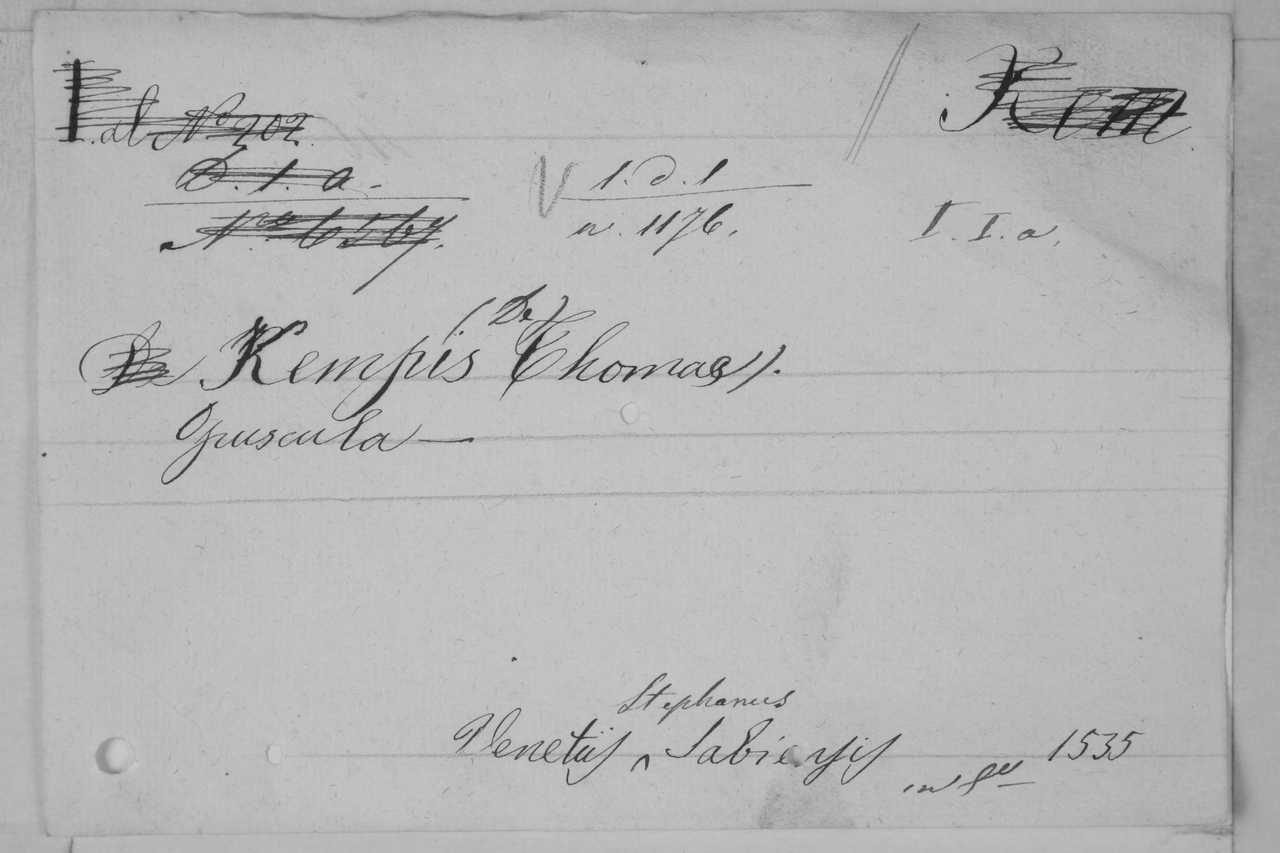 al No 202. Kem
D. 1. a.
1. d. 1
n. 1176. I. I. a.
(De)
Kempis Thomas).
Opuscula —
Stephanus
Venetiis ^ Sabiensis in 8º 1535